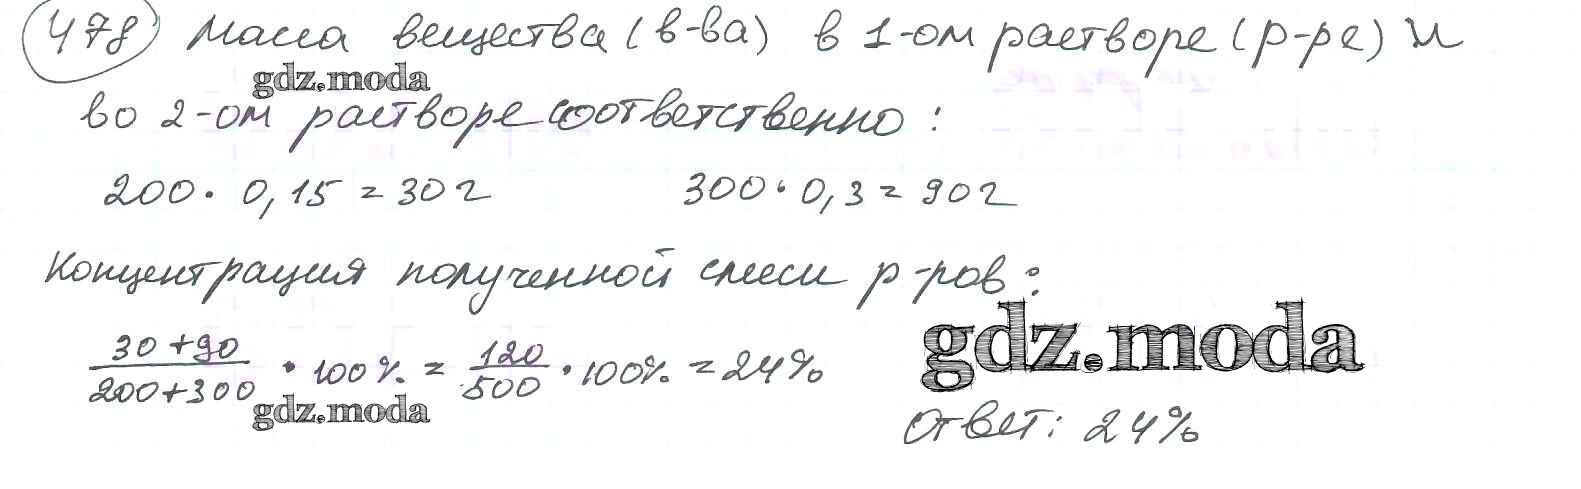 478 Масса вещества (в-ва) в 1-ом растворе (р-ре) и
gdz.moda
во 2-ом растворе соответственно:
200 · 0,15 = 30 г 300 · 0,3 = 90 г
Концентрация полученной смеси р-ров:
gdz.moda
30+90 / 200+300 · 100% = 120 / 500 · 100% = 24%
gdz.moda
Ответ: 24%